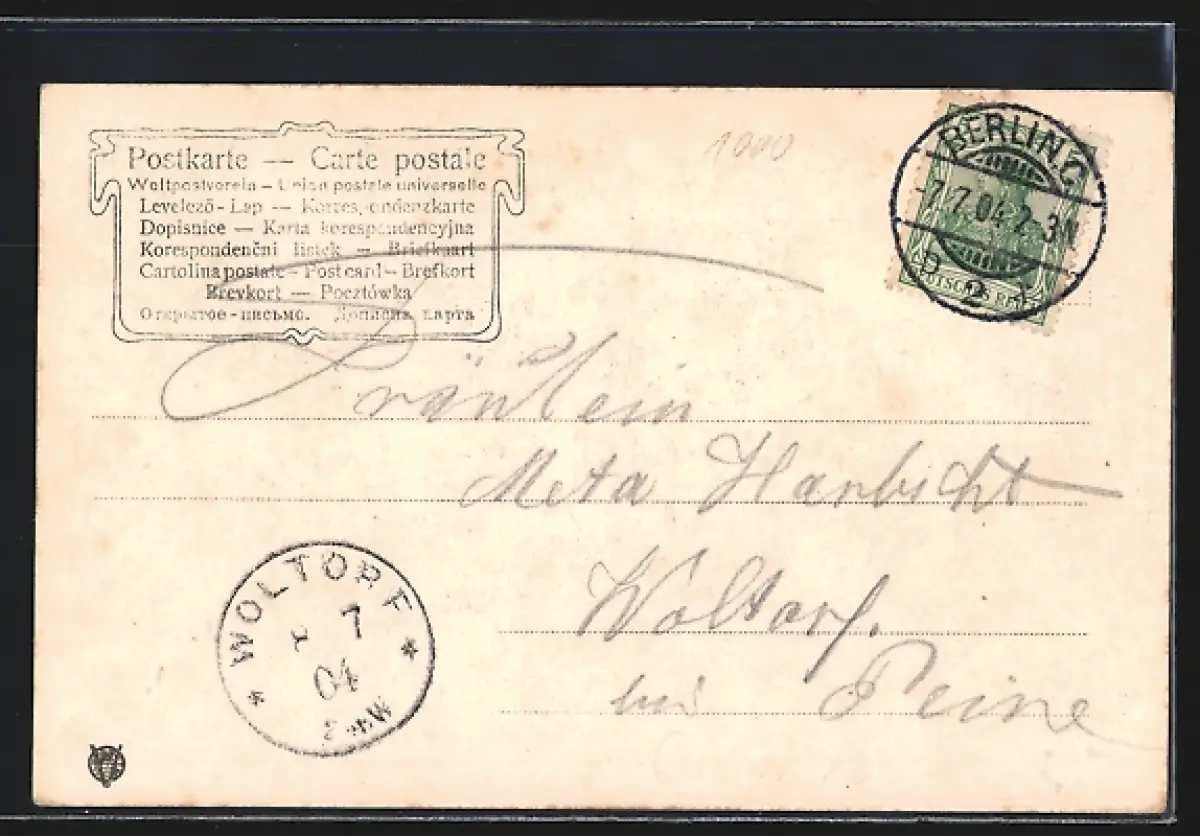 Postkarte — Carte postale
Weltpostverein – Union postale universelle
Levelező - Lap — Korrespondenzkarte
Dopisnice — Karta korespondencyjna
Korespondenční lístek — Briefkaart
Cartolina postale – Post card – Brefkort
Brevkort — Pocztówka
Открытое - письмо.
карта
1000
BERLIN.C.
7.7.04.2-3N
2
DEUTSCHES REICH
Fräulein
Meta Harbicht
Woltorf.
bei Peine
WOLTORF
7
04